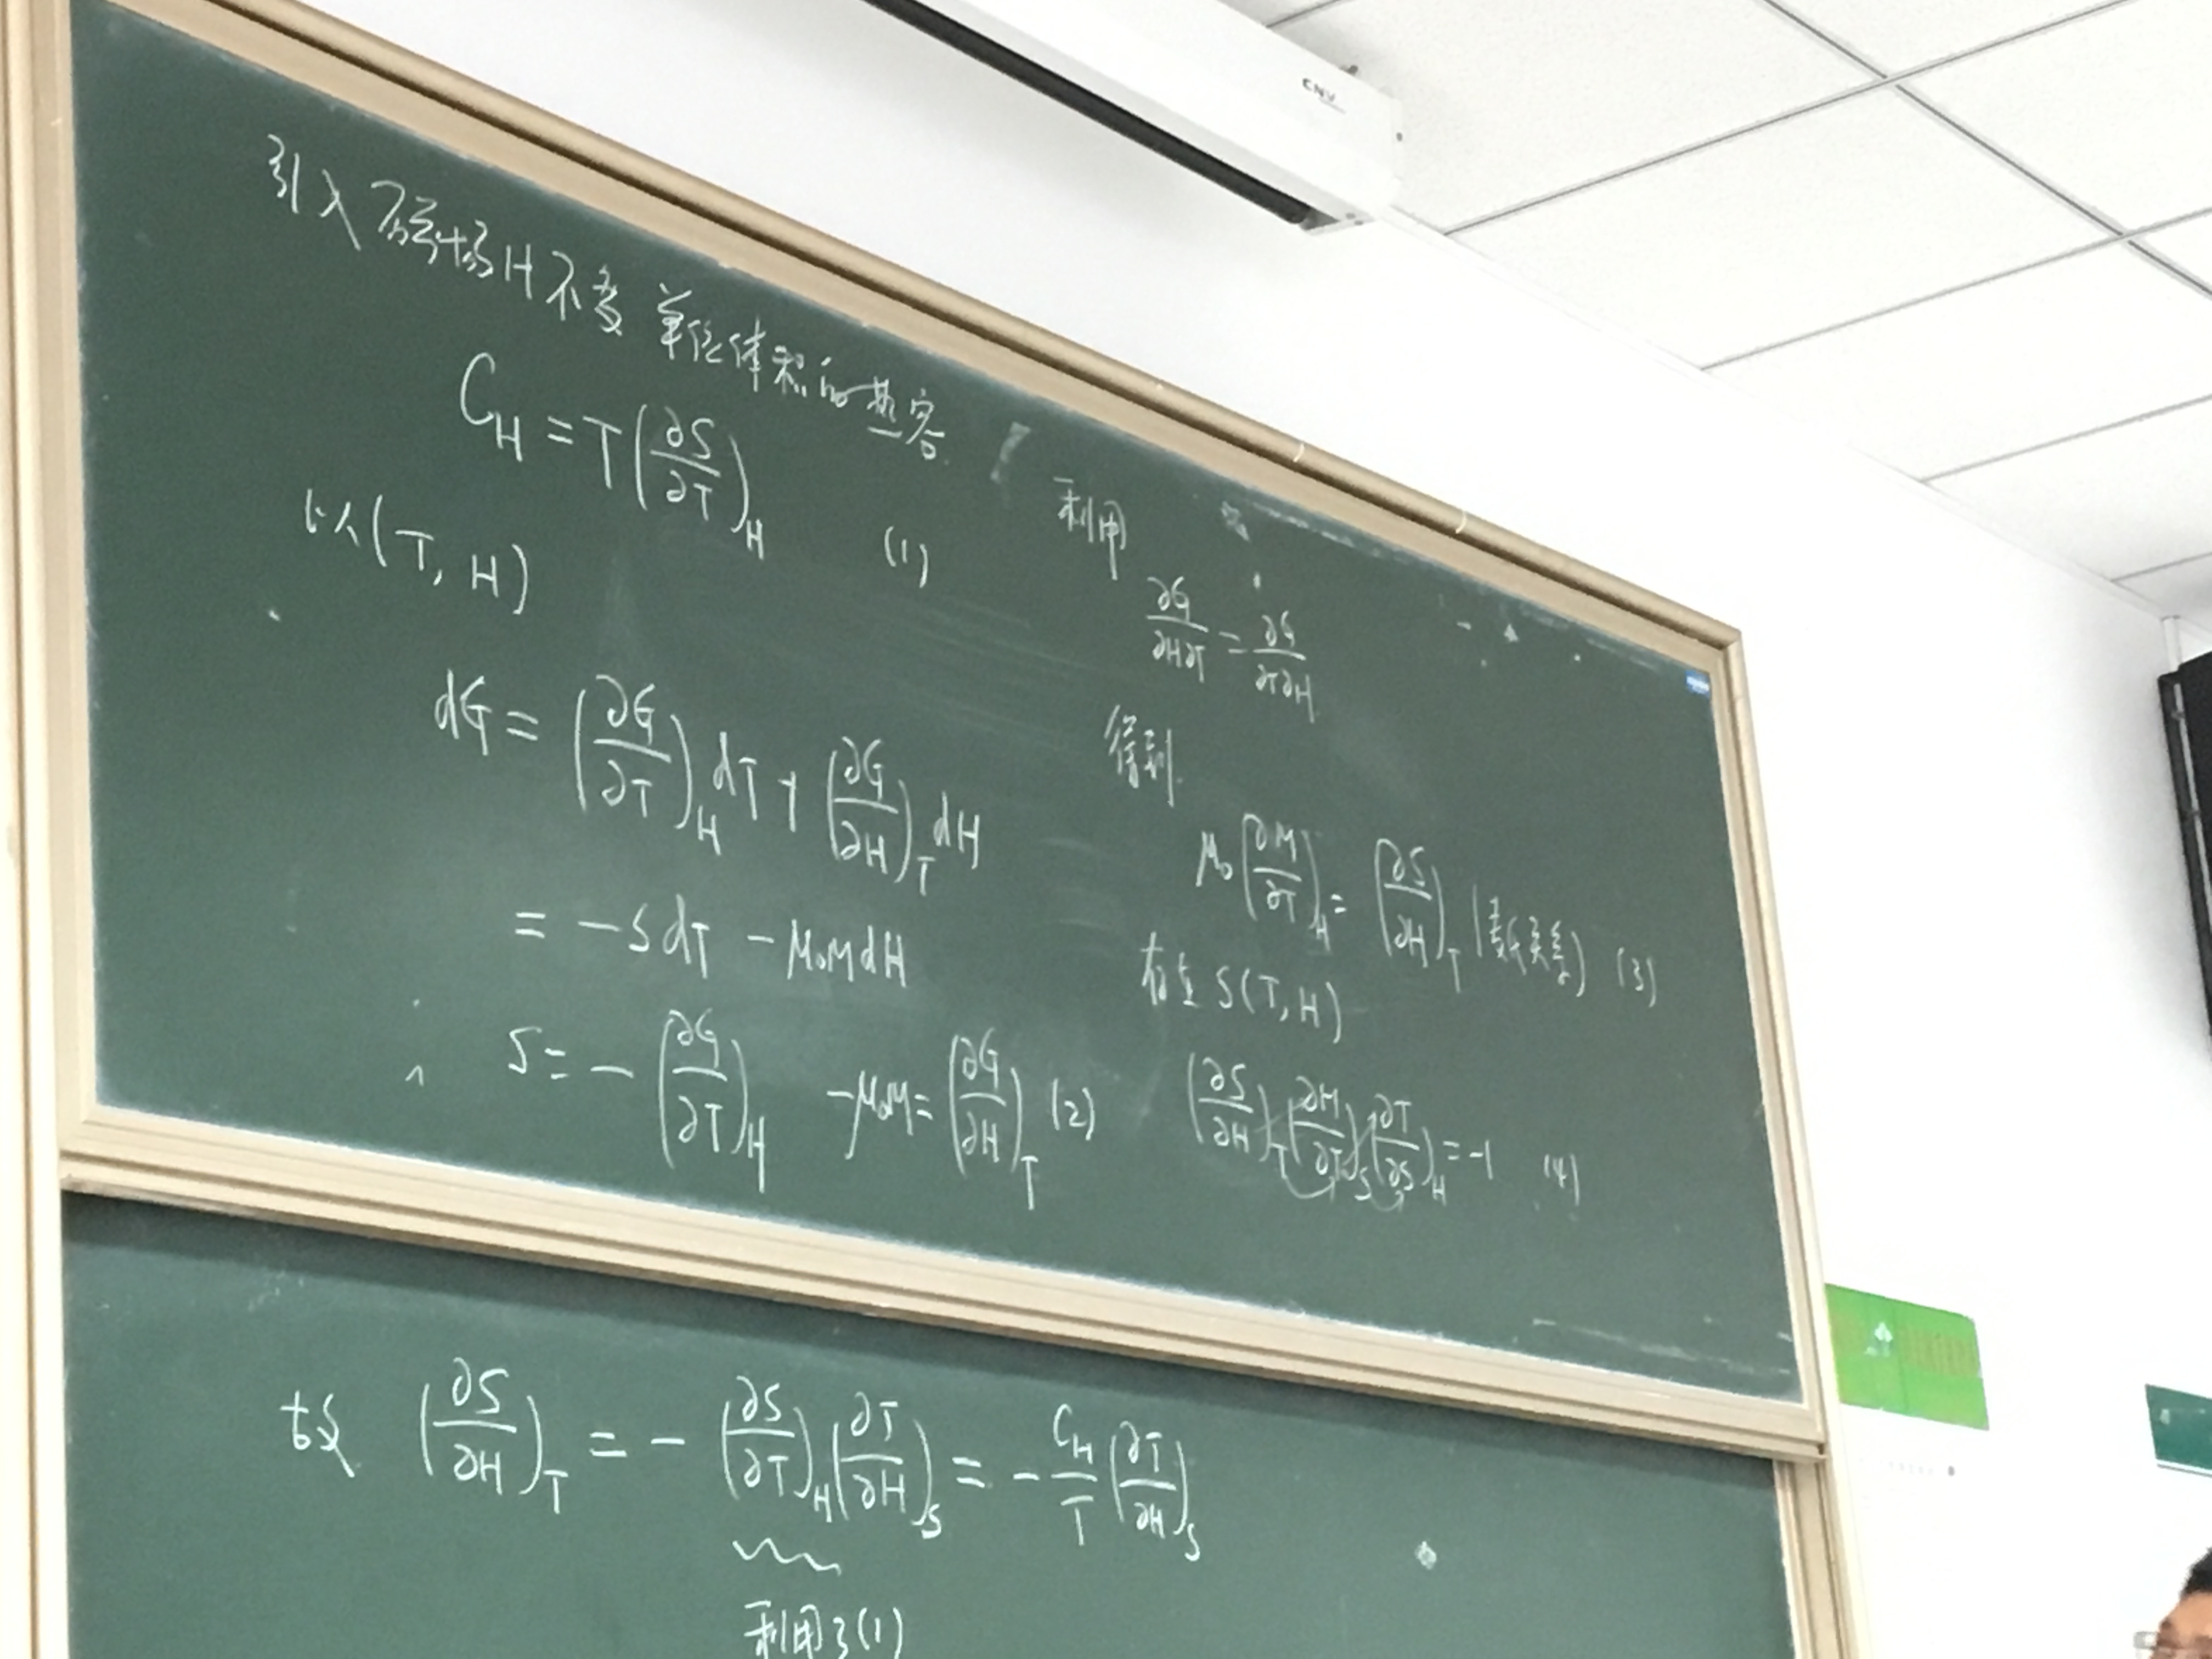 CNV
引入磁场H不变 单位体积的热容
C_H = T(∂S/∂T)_H (1)
以(T, H)
dG = (∂G/∂T)_H dT + (∂G/∂H)_T dH
= -SdT - μ₀MdH
S = -(∂G/∂T)_H -μ₀M = (∂G/∂H)_T (2)
利用
∂G/∂H∂T = ∂G/∂T∂H
得到
μ₀(∂M/∂T)_H = (∂S/∂H)_T (麦氏关系) (3)
S(T, H)
(∂S/∂H)_T (∂H/∂T)_S (∂T/∂S)_H = -1 (4)
故 (∂S/∂H)_T = -(∂S/∂T)_H (∂T/∂H)_S = -C_H/T (∂T/∂H)_S
利用了(1)